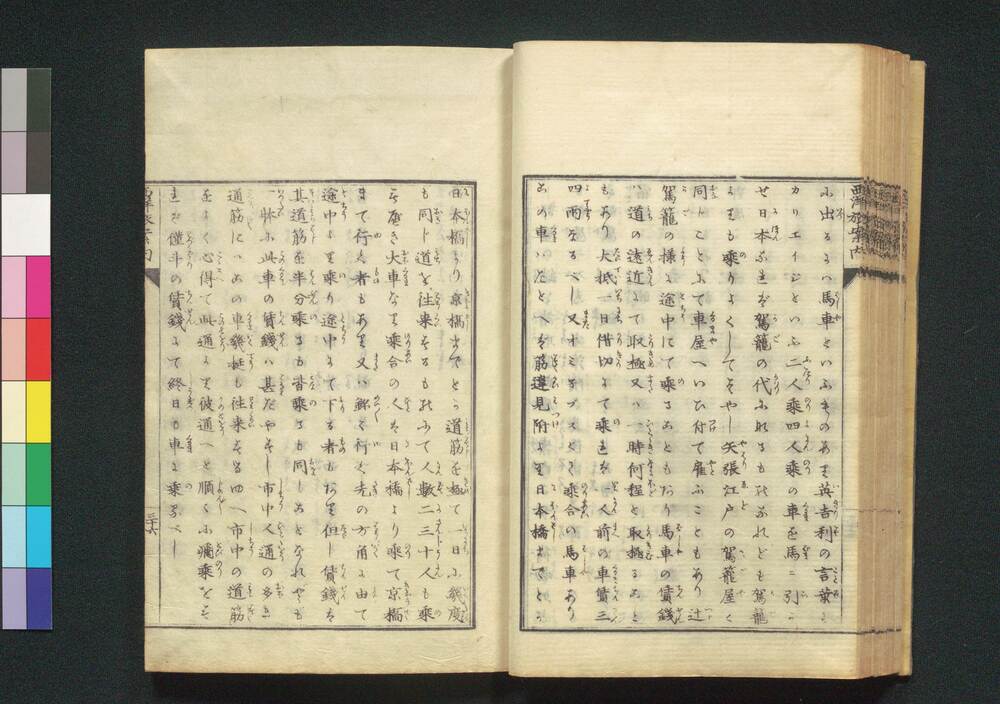 に出るには馬車といふものあり英吉利の言葉に
カリエイジといふ二人乗四人乗の車を馬に引か
せ日本なれば駕籠の代になるものなれども駕籠
よりも乗りよくしてはやし矢張江戸の駕籠屋と
同しことにて車屋へいひ付て雇ふこともあり辻
駕籠の様に途中にて乗ることもあり馬車の賃銭
ハ道の遠近にて取極又ハ一時何程と取極ること
もあり大抵一日借切にて乗れば一人前の車賃三
四両なるべし又ヲミニブスとて乗合の馬車あり
この車はたとへば筋違見附より日本橋までとか
日本橋より京橋までとか道筋を極て一日に幾度
も同じ道を往来するものにて人数二三十人も乗
るべき大車なり乗合の人は日本橋より乗て京橋
まて行く者もあり又ハ鮮く行く先の方角に由て
途中より乗り途中にて下る者もあり但し賃銭は
其道筋を半分乗るも皆乗るも同しことなれやも
一体に此車の賃銭ハ甚だやすし市中人通の多き
通筋にハこの車幾挺も往来する故へ市中の道筋
をよく心得て此通より彼通へと順々に痛乗をす
れば僅斗の賃銭にて終日も車に乗るべし
西洋旅案内
二十六